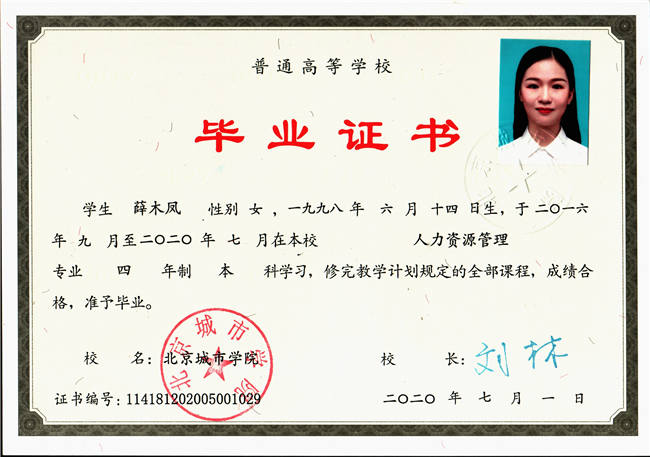 普通高等学校
毕业证书
学生 薛木凤 性别 女 ，一九九八 年 六 月 十四 日生，于二〇一六
年 九 月至二〇二〇 年 七 月在本校 人力资源管理
专业 四 年制 本 科学习，修完教学计划规定的全部课程，成绩合
格，准予毕业。
校 名：北京城市学院
校 长：刘林
北京城市学院
证书编号：114181202005001029
二〇二〇 年 七 月 一 日